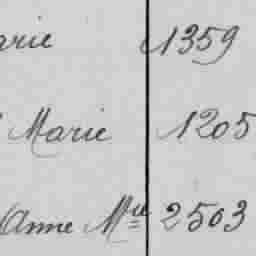 arie 1359
Marie 1205
Anne Mie 2503